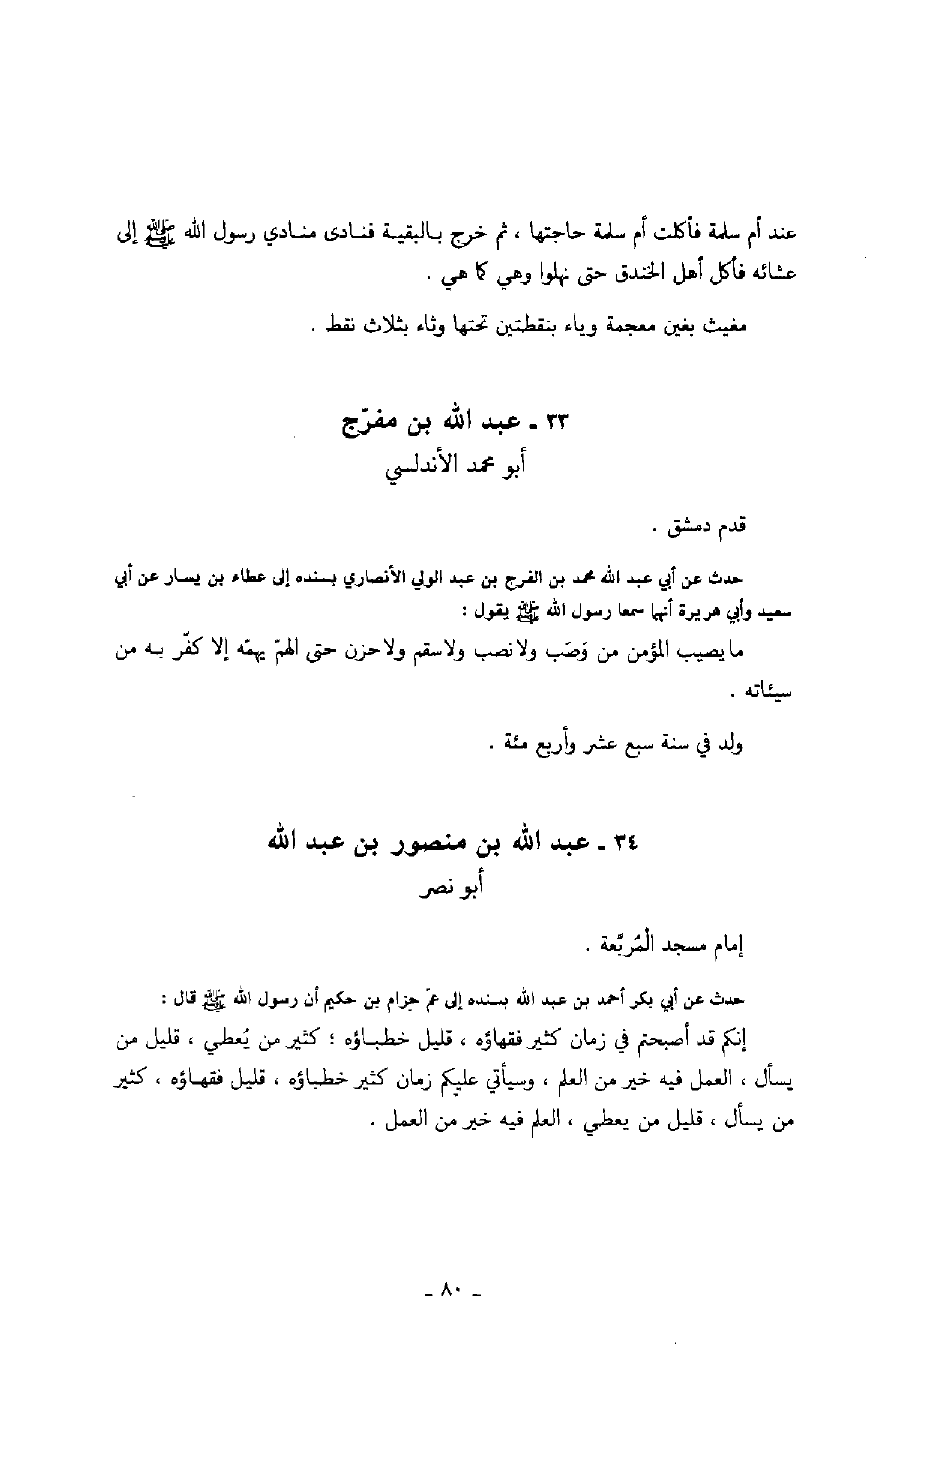 عند أم سلمة فأكلت أم سلمة حاجتها ، ثم خرج بالبقية فنادى منادي رسول الله ﷺ إلى
عشائه فأكل أهل الخندق حتى نهلوا وهي كما هي .
مغيث بغين معجمة وياء بنقطتين تحتها وثاء بثلاث نقط .
٣٣ ـ عبد الله بن مفرّج
أبو محمد الأندلسي
قدم دمشق .
حدث عن أبي عبد الله محمد بن الفرج بن عبد الولي الأنصاري بسنده إلى عطاء بن يسار عن أبي
سعيد وأبي هريرة أنهما سمعا رسول الله ﷺ يقول :
ما يصيب المؤمن من وَصَب ولا نصب ولا سقم ولا حزن حتى الهمّ يهمّه إلا كفّر به من
سيئاته .
ولد في سنة سبع عشر وأربع مئة .
٣٤ ـ عبد الله بن منصور بن عبد الله
أبو نصر
إمام مسجد المُربَّعة .
حدث عن أبي بكر أحمد بن عبد الله بسنده إلى عمّ حزام بن حكيم أن رسول الله ﷺ قال :
إنكم قد أصبحتم في زمان كثير فقهاؤه ، قليل خطباؤه ؛ كثير من يُعطي ، قليل من
يسأل ، العمل فيه خير من العلم ، وسيأتي عليكم زمان كثير خطباؤه ، قليل فقهاؤه ، كثير
من يسأل ، قليل من يعطي ، العلم فيه خير من العمل .
ـ ٨٠ ـ